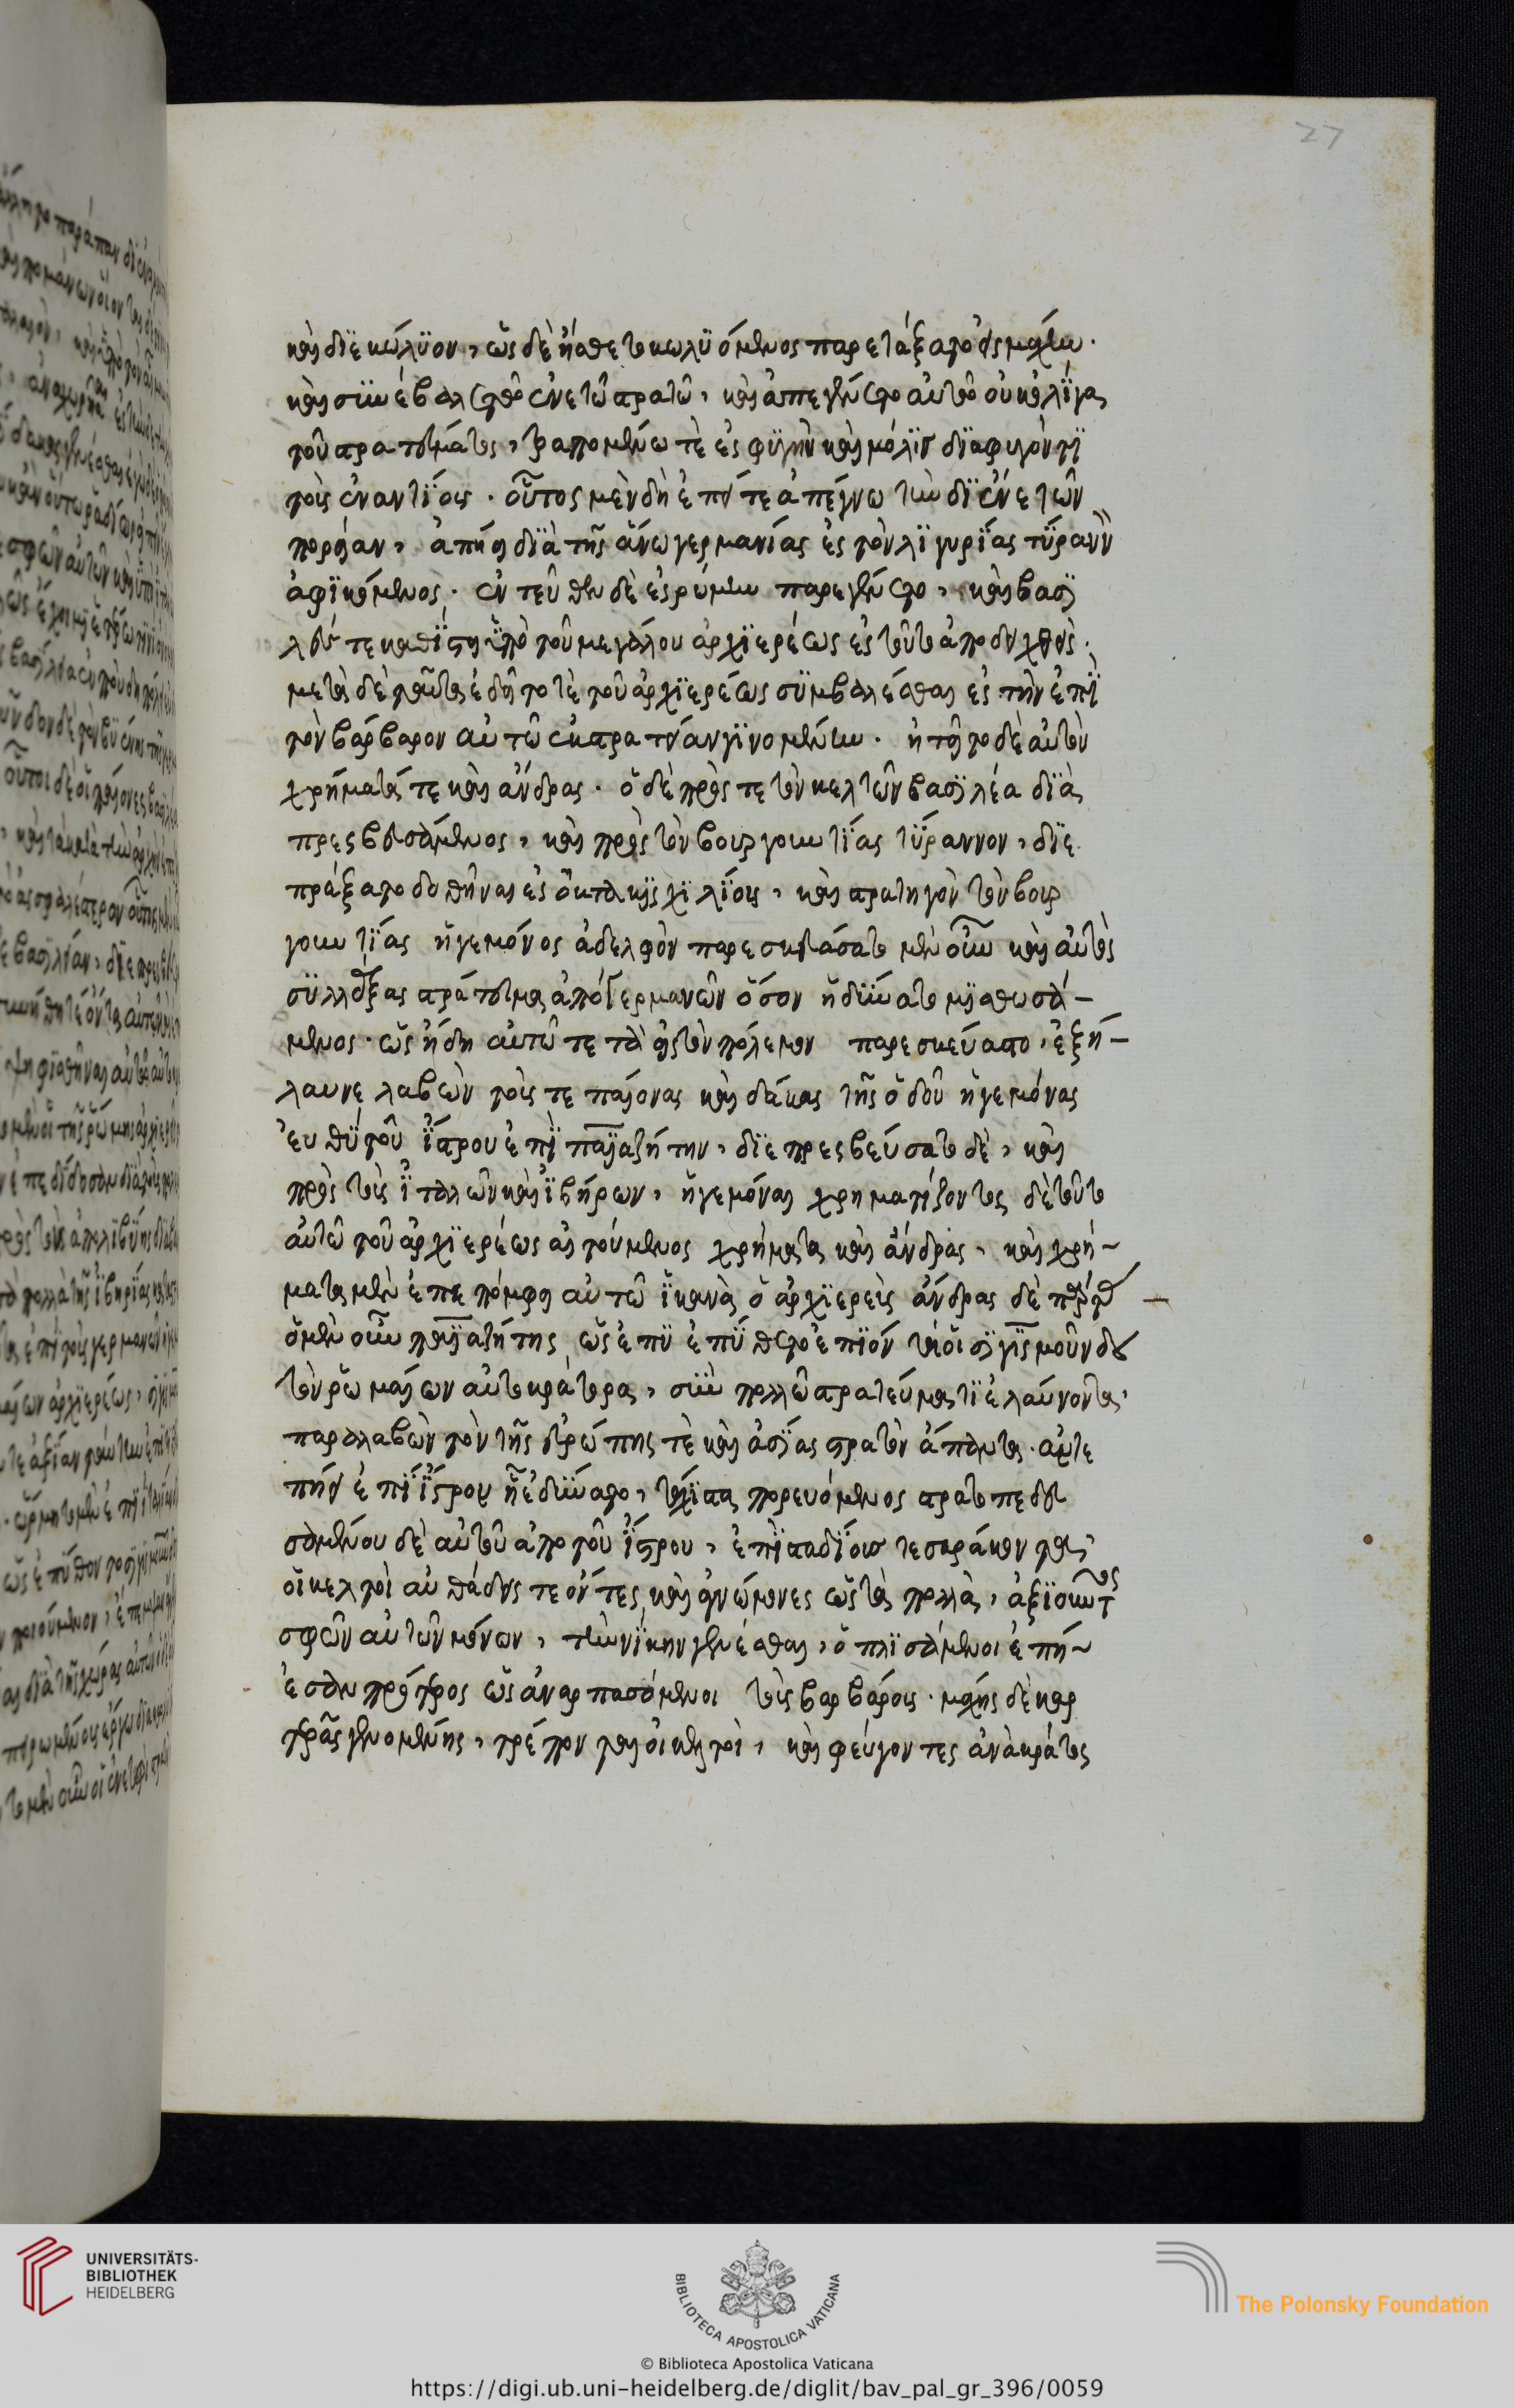 27
καὶ διεκώλυον, ὡς δὲ ᾔσθετο κωλυόμενος παρετάξατο ἐς μάχην.
καὶ συνέβαλε τῷ ἐνετῶν στρατῷ, καὶ ἀπεγένετο αὐτοῦ οὐκ ὀλίγα
τοῦ στρατεύματος, τραπομένω τὲ ἐς φυγὴν καὶ μόλις διαφυγόντι
τοὺς ἐναντίους. οὗτος μὲν δὴ ἐπεί τε ἀπέγνω τὴν δι' ἐνετῶν
πορείαν, ἀπῄει διὰ τῆς ἄνω γερμανίας ἐς τὸν λιγυρίας τύραννον
ἀφικόμενος. ἐντεῦθεν δὲ ἐς ῥώμην παρεγένετο, καὶ βασι
λεύς τε καθίσταται ὑπὸ τοῦ μεγάλου ἀρχιερέως ἐς τοῦτο ἀποδειχθεὶς.
μετὰ δὲ ταῦτα ἐδεῖτο τὲ τοῦ ἀρχιερέως συμβαλέσθαι ἐς τὴν ἐπὶ
τὸν βάρβαρον αὐτῷ ἐκστρατείαν γινομένην. ᾐτεῖτο δὲ αὐτὸν
χρήματά τε καὶ ἄνδρας. ὁ δὲ πρός τε τὸν κελτῶν βασιλέα δια
πρεσβευσάμενος, καὶ πρὸς τὸν βουργουντίας τύραννον, διε
πράξατο δοθῆναι ἐς ὀκτακισχιλίους, καὶ στρατηγὸν τὸν βουρ
γουντίας ἡγεμόνος ἀδελφὸν παρεσκευάσατο μὲν οὖν καὶ αὐτὸς
συλλέξας στράτευμα ἀπὸ γερμανῶν ὅσον ἠδύνατο μισθωσά-
μενος. ὡς ἤδη αὐτῷ τε τὰ ἐς τὸν πόλεμον παρεσκεύαστο, ἐξή-
λαυνε λαβὼν τούς τε παίονας καὶ δάκας τῆς ὁδοῦ ἡγεμόνας
εὐθὺ τοῦ ἴστρου ἐπὶ παϊαζήτην, διεπρεσβεύσατο δὲ, καὶ
πρὸς τοὺς ἰταλῶν καὶ ἰβήρων, ἡγεμόνας χρηματίζοντος δὲ τοῦτο
αὐτῷ τοῦ ἀρχιερέως αἰτούμενος χρήματα καὶ ἄνδρας, καὶ χρή-
ματα μὲν ἐπεπόμφει αὐτῷ ἱκανὰ ὁ ἀρχιερεὺς ἄνδρας δὲ
ὁ μὲν οὖν παϊαζήτης, ὡς ἐπεὶ ἐπύθετο ἐπιόντά οἱ σιγισμοῦνδον
τὸν ῥωμαίων αὐτοκράτορα, σὺν πολλῷ στρατεύματι ἐλαύνοντα,
παραλαβὼν τὸν τῆς εὐρώπης τὲ καὶ ἀσίας στρατὸν ἅπαντα. ἀντε
πῄει ἐπὶ ἴστρον ᾗ ἐδύνατο, τάχιστα πορευόμενος στρατοπεδευ
σαμένου δὲ αὐτοῦ ἀπὸ τοῦ ἴστρου, ἐπὶ σταδίους τεσσαράκοντα,
οἱ κελτοὶ αὐθάδεις τε ὄντες, καὶ ἀγνώμονες ὡς τὰ πολλὰ, ἀξιοῦντες
σφῶν αὐτῶν μόνων, τὴν νίκην γενέσθαι, ὁπλισάμενοι ἐπῄ-
εσαν πρότερος ὡς ἀναρπασόμενοι τοὺς βαρβάρους. μάχης δὲ καρ
τερᾶς γενομένης, τρέπονται οἱ κελτοὶ, καὶ φεύγοντες ἀνὰ κράτος
UNIVERSITÄTS-
BIBLIOTHEK
HEIDELBERG
BIBLIOTECA APOSTOLICA VATICANA
The Polonsky Foundation
© Biblioteca Apostolica Vaticana
https://digi.ub.uni-heidelberg.de/diglit/bav_pal_gr_396/0059